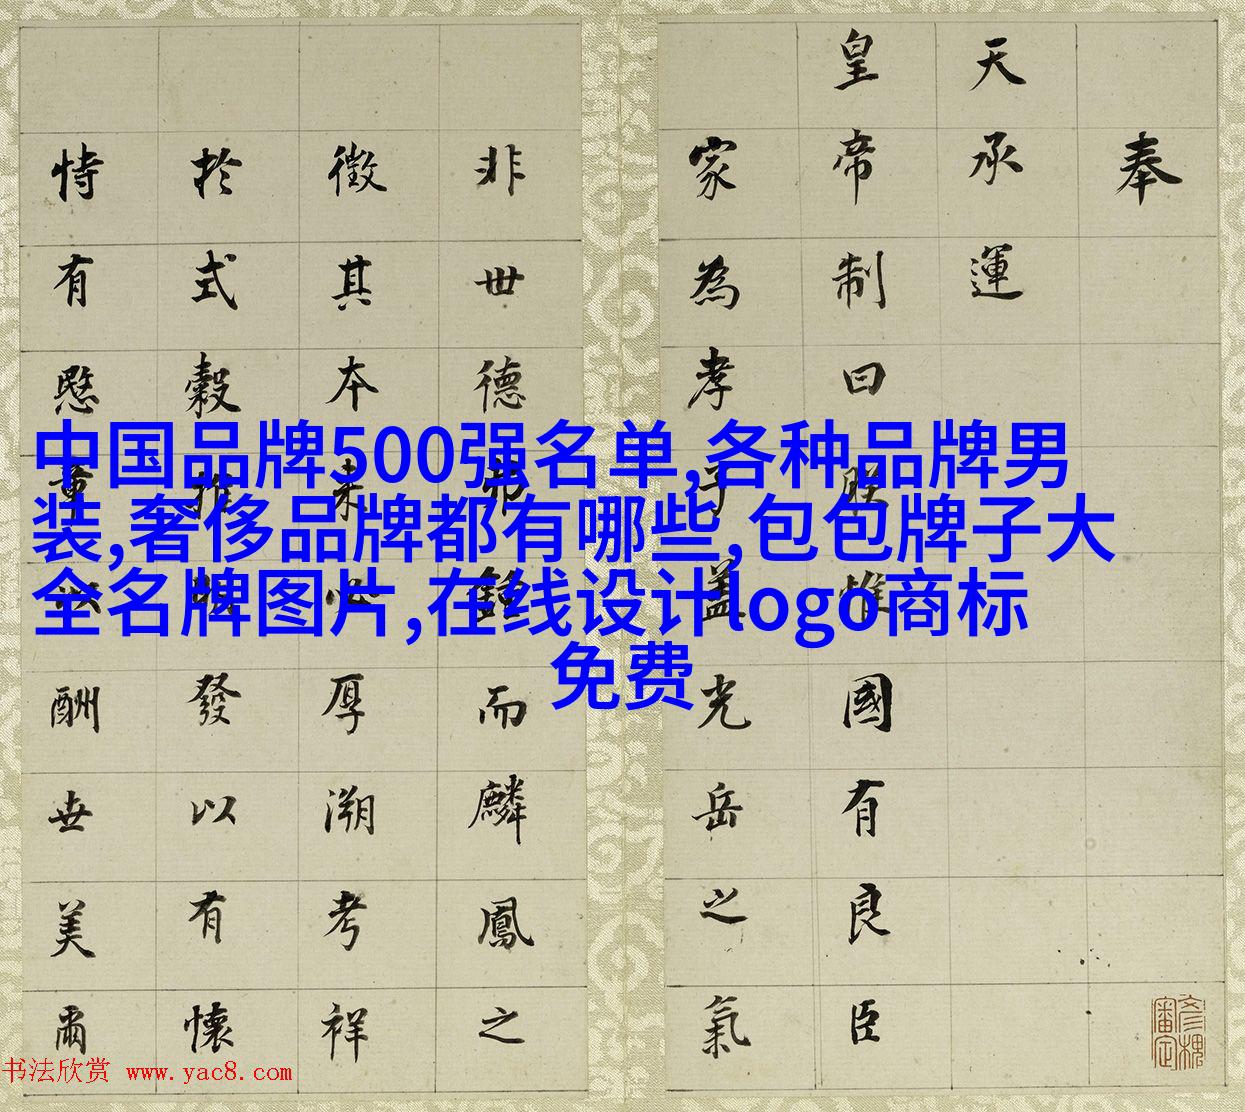 中国品牌500强名单,各种品牌男
装,奢侈品牌都有哪些,包包牌子大
全名牌图片,在线设计logo商标
免费
奉
天承運
皇帝制曰朕惟國有良臣
家為孝子蓋光岳之氣
非世德弗鍾而麟鳳之
徵其本未必厚溯考祥
於式穀推發以有懷
特有愍章以酬世美爾
书法欣赏 www.yac8.com